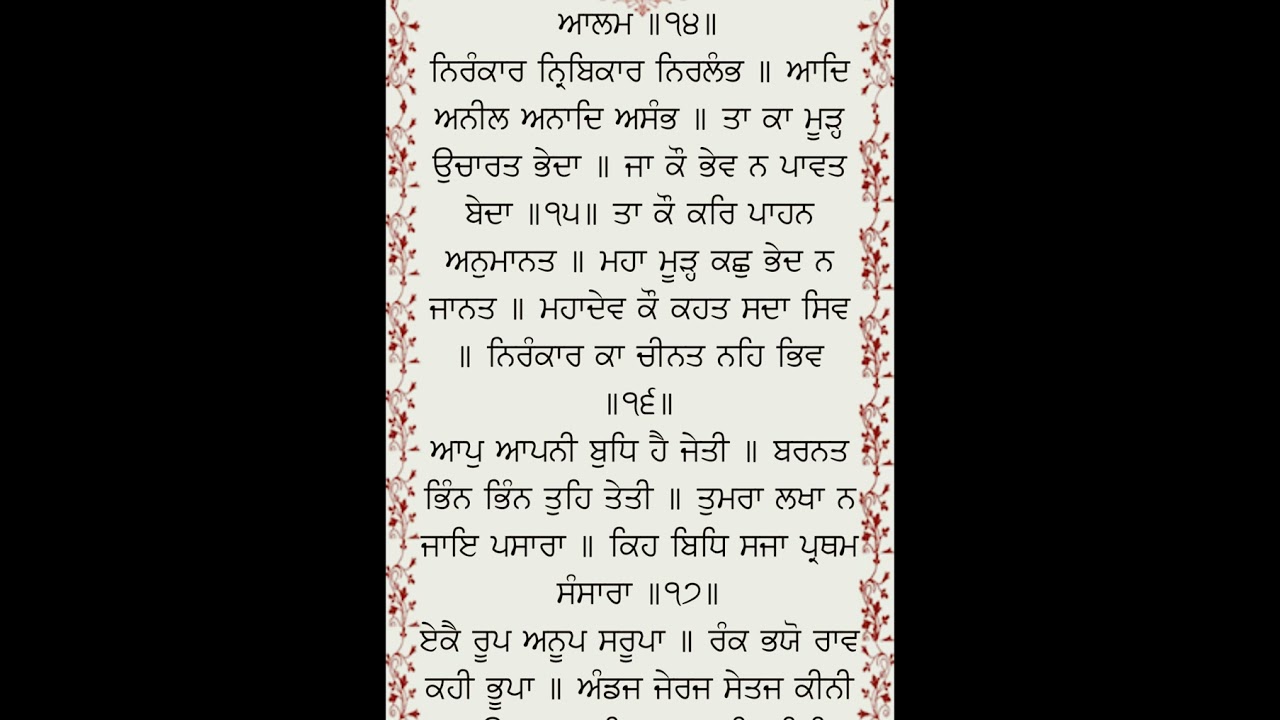 ਆਲਮ ॥੧੪॥
ਨਿਰੰਕਾਰ ਨ੍ਰਿਬਿਕਾਰ ਨਿਰਲੰਭ ॥ ਆਦਿ
ਅਨੀਲ ਅਨਾਦਿ ਅਸੰਭ ॥ ਤਾ ਕਾ ਮੂੜ੍ਹ
ਉਚਾਰਤ ਭੇਦਾ ॥ ਜਾ ਕੌ ਭੇਵ ਨ ਪਾਵਤ
ਬੇਦਾ ॥੧੫॥ ਤਾ ਕੌ ਕਰਿ ਪਾਹਨ
ਅਨੁਮਾਨਤ ॥ ਮਹਾ ਮੂੜ੍ਹ ਕਛੁ ਭੇਦ ਨ
ਜਾਨਤ ॥ ਮਹਾਦੇਵ ਕੌ ਕਹਤ ਸਦਾ ਸਿਵ
॥ ਨਿਰੰਕਾਰ ਕਾ ਚੀਨਤ ਨਹਿ ਭਿਵ
॥੧੬॥
ਆਪੁ ਆਪਨੀ ਬੁਧਿ ਹੈ ਜੇਤੀ ॥ ਬਰਨਤ
ਭਿੰਨ ਭਿੰਨ ਤੁਹਿ ਤੇਤੀ ॥ ਤੁਮਰਾ ਲਖਾ ਨ
ਜਾਇ ਪਸਾਰਾ ॥ ਕਿਹ ਬਿਧਿ ਸਜਾ ਪ੍ਰਥਮ
ਸੰਸਾਰਾ ॥੧੭॥
ਏਕੈ ਰੂਪ ਅਨੂਪ ਸਰੂਪਾ ॥ ਰੰਕ ਭਯੋ ਰਾਵ
ਕਹੀ ਭੂਪਾ ॥ ਅੰਡਜ ਜੇਰਜ ਸੇਤਜ ਕੀਨੀ